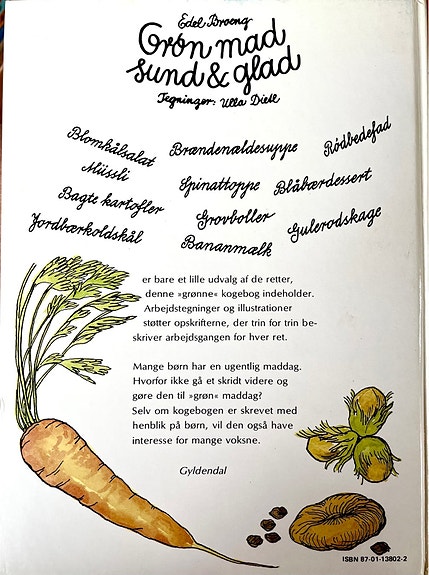 Edel Broeng
Grøn mad
sund & glad
Tegninger: Ulla Diehl
Blomkålsalat Brændenældesuppe Rødbedefad
Müssli Spinattoppe Blåbærdessert
Bagte kartofler Grovboller Gulerodskage
Jordbærkoldskål Bananmælk
er bare et lille udvalg af de retter,
denne »grønne« kogebog indeholder.
Arbejdstegninger og illustrationer
støtter opskrifterne, der trin for trin be-
skriver arbejdsgangen for hver ret.
Mange børn har en ugentlig maddag.
Hvorfor ikke gå et skridt videre og
gøre den til »grøn« maddag?
Selv om kogebogen er skrevet med
henblik på børn, vil den også have
interesse for mange voksne.
Gyldendal
ISBN 87-01-13802-2